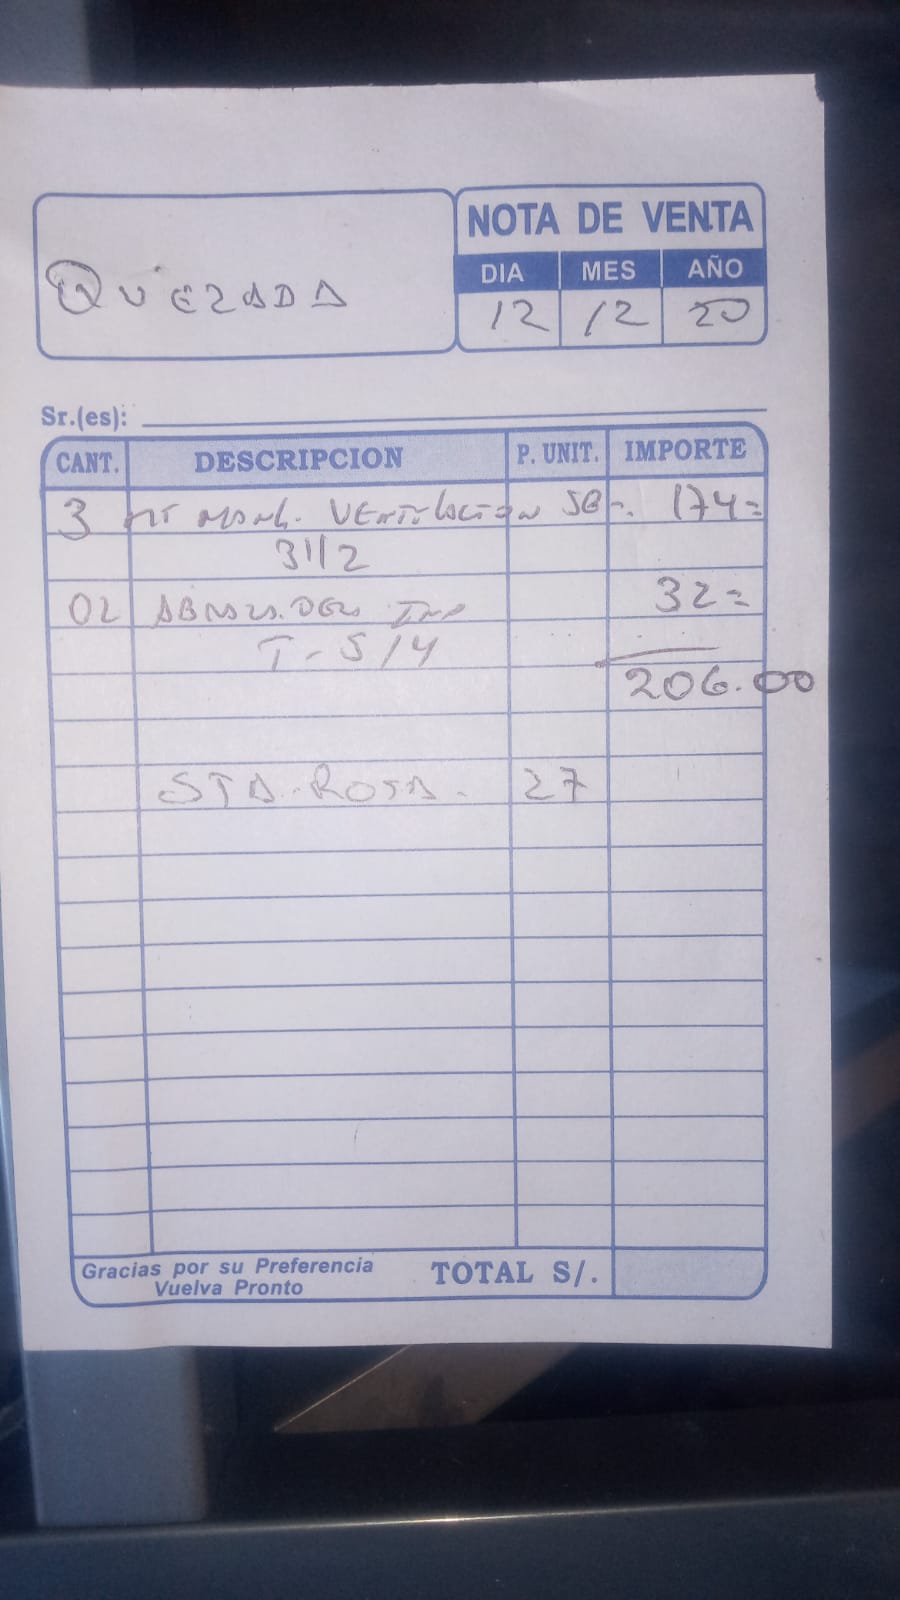 NOTA DE VENTA
DIA MES AÑO
QUEZADA
12 12 20
Sr.(es):
CANT. DESCRIPCION P. UNIT. IMPORTE
3 MT MANG. VENTILACION 58=. 174=
31/2
02 ABRAZ. DEL
32=
T-5/4
206.00
STA. ROSA. 27
Gracias por su Preferencia
Vuelva Pronto
TOTAL S/.